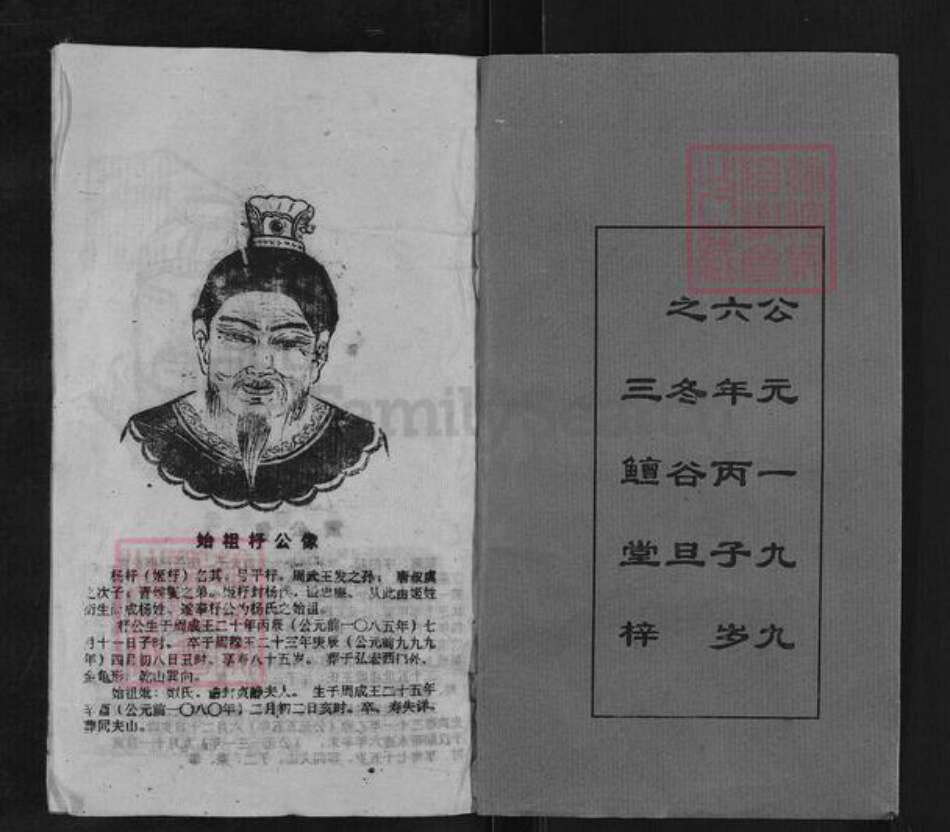 公元一九九
六年丙子岁
之冬谷旦
三鱣堂梓
始祖杼公像
杨杼（姬杼）名其，号平杼。周武王发之孙；唐叔虞
之次子，晋侯燮之弟。姬杼封杨侯，谥忠 从此由姬姓
衍生而成杨姓。遂奉杼公为杨氏之始祖。
杼公生于周成王二十年丙辰（公元前一〇八五年）七
月十一日子时。卒于周穆王二十三年庚辰（公元前九九九
年）四月初八日丑时。享寿八十五岁。葬于弘农西门外，
金龟形，乾山巽向。
始祖妣：姒氏，诰封贞静夫人。生于周成王二十五年
辛酉（公元前一〇八〇年）二月初二日亥时。卒、寿失详，
葬同夫山。
FamilySearch